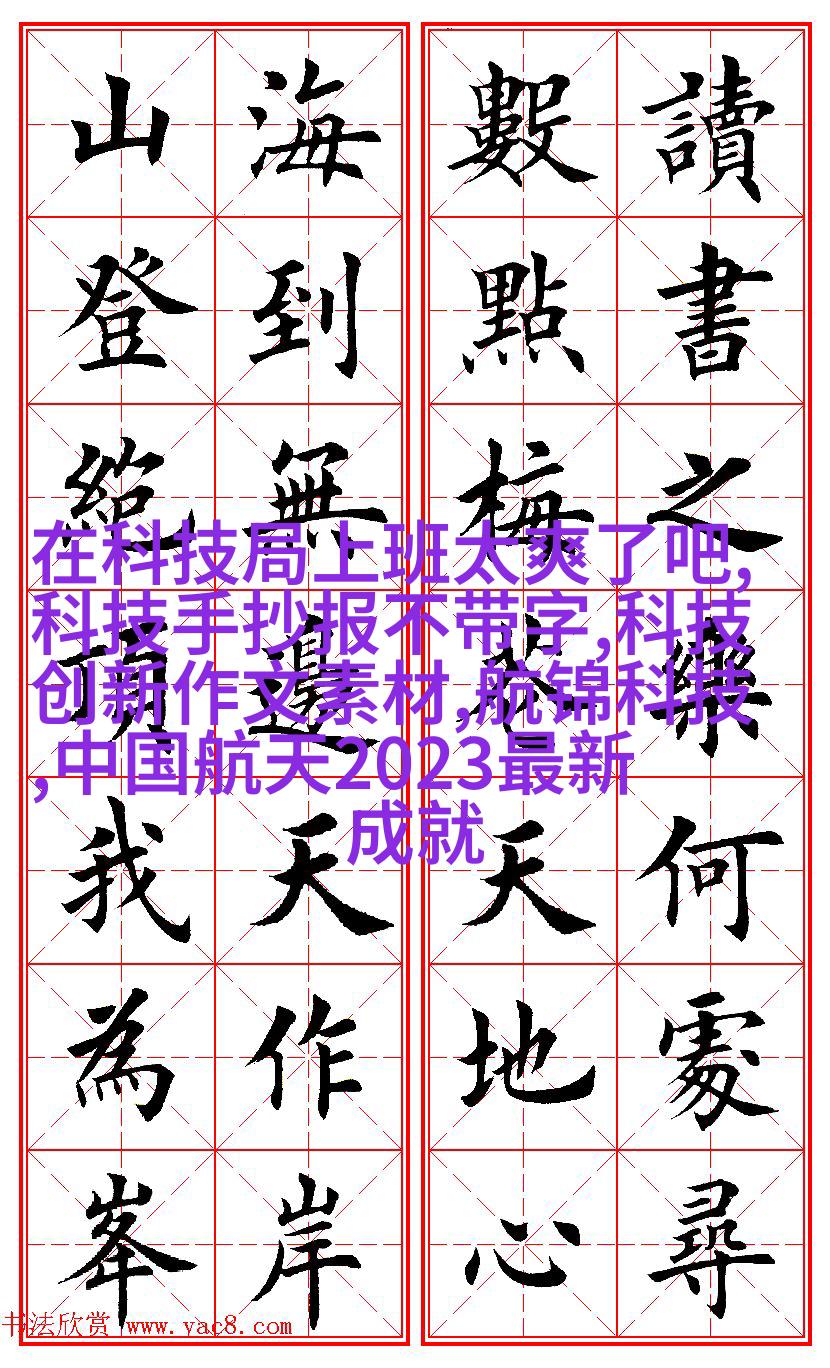 讀書之樂何處尋
數點梅花天地心
海到無邊天作岸
山登絶頂我為峯
在科技局上班太爽了吧,
科技手抄报不带字,科技
创新作文素材,航锦科技
,中国航天2023最新
成就
书法欣赏 www.yac8.com